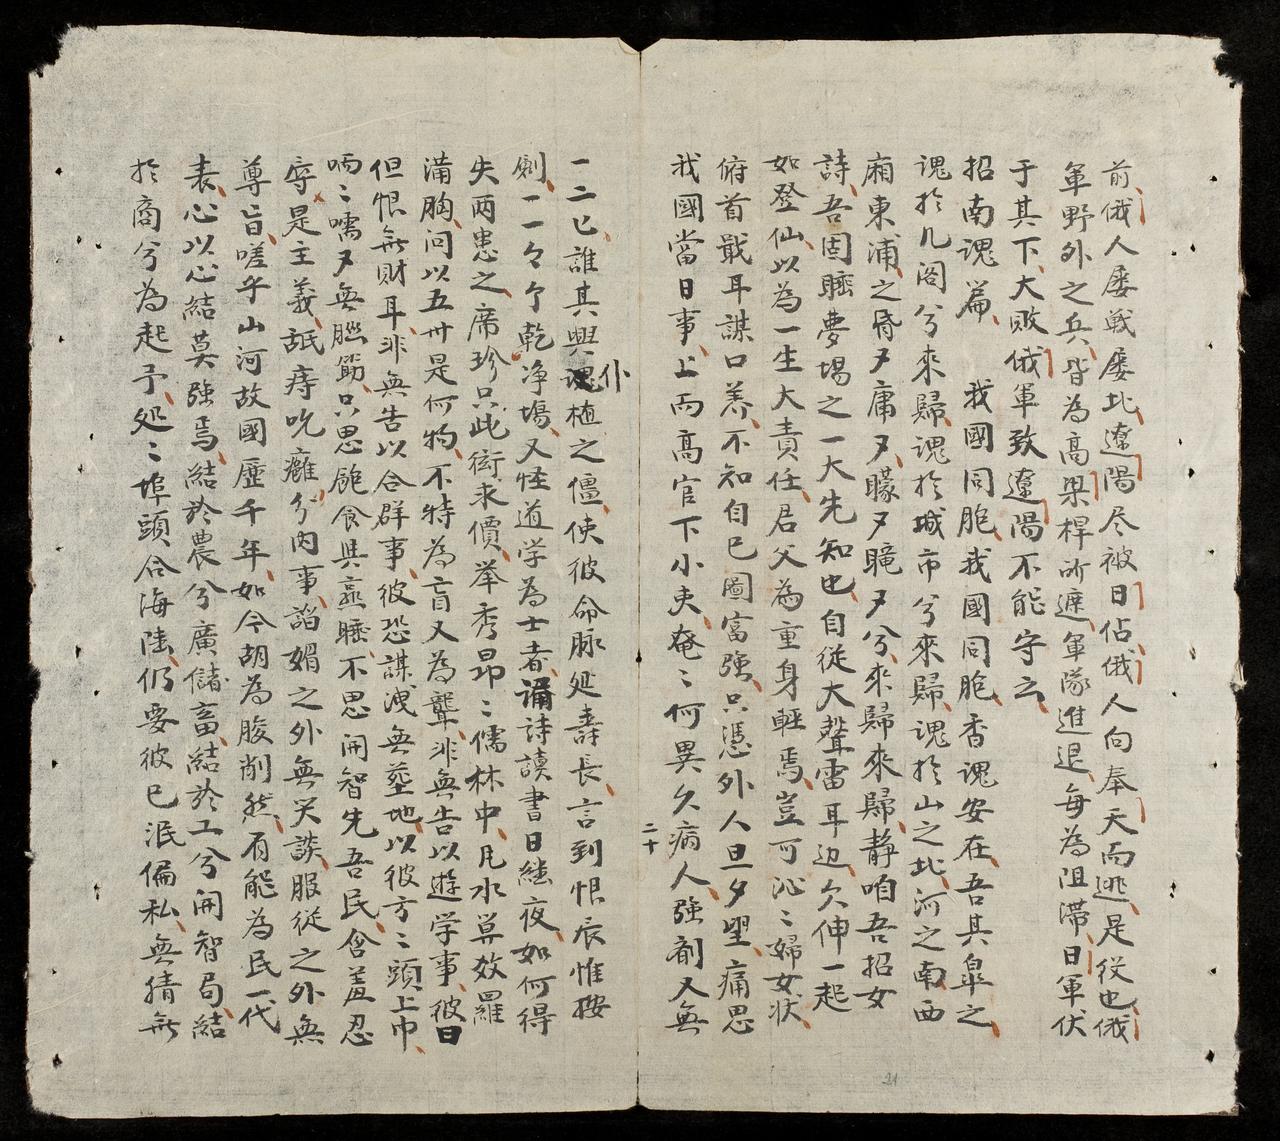 前俄人屡戦屡北遼陽尽被日佔俄人向奉天而逃是役也俄
軍野外之兵皆為高粱桿所遮軍隊進退每為阻滞日軍伏
于其下大敗俄軍致遼陽不能守云
招南魂篇 我國同胞我國同胞香魂安在吾其皐之
魂於几阁兮來歸魂於城市兮來歸魂於山之北河之南西
廂東浦之昏夕庸夕朦夕曨夕兮來歸來歸静咱吾招女
詩吾固睡夢場之一大先知也自従大聲雷耳边欠伸一起
如登仙以為一生大責任君父為重身輕焉豈可沁〻婦女状
俯首戢耳謀口养不知自已圖富強只憑外人旦夕望痛思
我國當日事上而高官下小吏奄〻何異久病人強剤又無
二十
一二匕誰其興仆植之僵使彼命脉延壽長言到恨辰惟按
劍一一々亇乾净塲又怪道学為士者誦詩讀書日継夜如何得
失两患之席珍只此衒求價举秀昂〻儒林中凡水莫效羅
满胸问以五卅是何物不特為盲又為聾非無告以遊学事彼曰
但恨無财耳非無告以合群事彼恐謀洩無塟地以彼方〻頭上巾
喃〻嚅夕無腦筋只思飽食與熟睡不思開智先吾民含羞忍
辱是主義舐痔吮癰分内事謟媚之外無笑談服従之外無
尊旨嗟乎山河故國歷千年如今胡為腹削然有能為民一代
表心以心結莫強焉結於農兮廣儲畜結於工兮開智局結
於商兮為起予处〻埠頭合海陆仍要彼已泯偏私無猜無